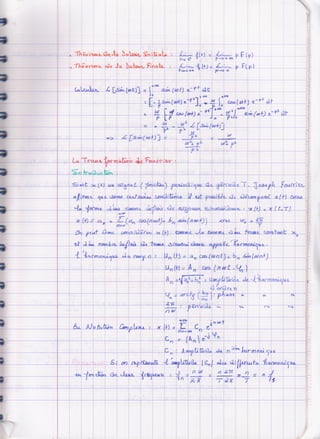 . Théorème de la Valeur Initiale : lim f(t) = lim p F(p)
t→0⁺ p→+∞
. Théorème de la Valeur Finale : lim f(t) = lim p F(p)
t→+∞ p→0
Calculer L[sin(wt)] = ∫ sin(wt) e^{-pt} dt
=> L[sin(wt)] =
La Transformation de Fourier :
Introduction
Soit x(t) un signal (fonction) périodique de période T. Joseph Fourier
affirme que sous certaines conditions il est possible de décomposer x(t) sous
la forme d'une somme infinie de signaux sinusoïdaux : x(t) = x(t+T)
x(t) = a₀ + Σ (aₙ cos(nwt) + bₙ sin(nwt)) avec w₀ = 2π/T
On peut donc considérer x(t) comme la somme d'un terme constant a₀
et d'un nombre infini de terme sinusoïdaux appelés "harmoniques"
L'harmonique de rang n : Uₙ(t) = aₙ cos(nwt) + bₙ sin(nwt)
Uₙ(t) = Aₙ cos(nwt - φₙ)
Aₙ = √(aₙ² + bₙ²) : amplitude de l'harmonique
d'ordre n
φₙ = arctg(bₙ/aₙ) : phase " "
2π/nw : période " " "
Ou Notation Complexe : x(t) = Σ Cₙ e^{jnwt}
Cₙ = |Aₙ| e^{jφₙ}
Cₙ : Amplitude de nième harmonique
Si on représente l'amplitude |Cₙ| des différents harmoniques
en fonction de leurs fréquences : fₙ = nw/2π = n2π/T2π = n/T = n f